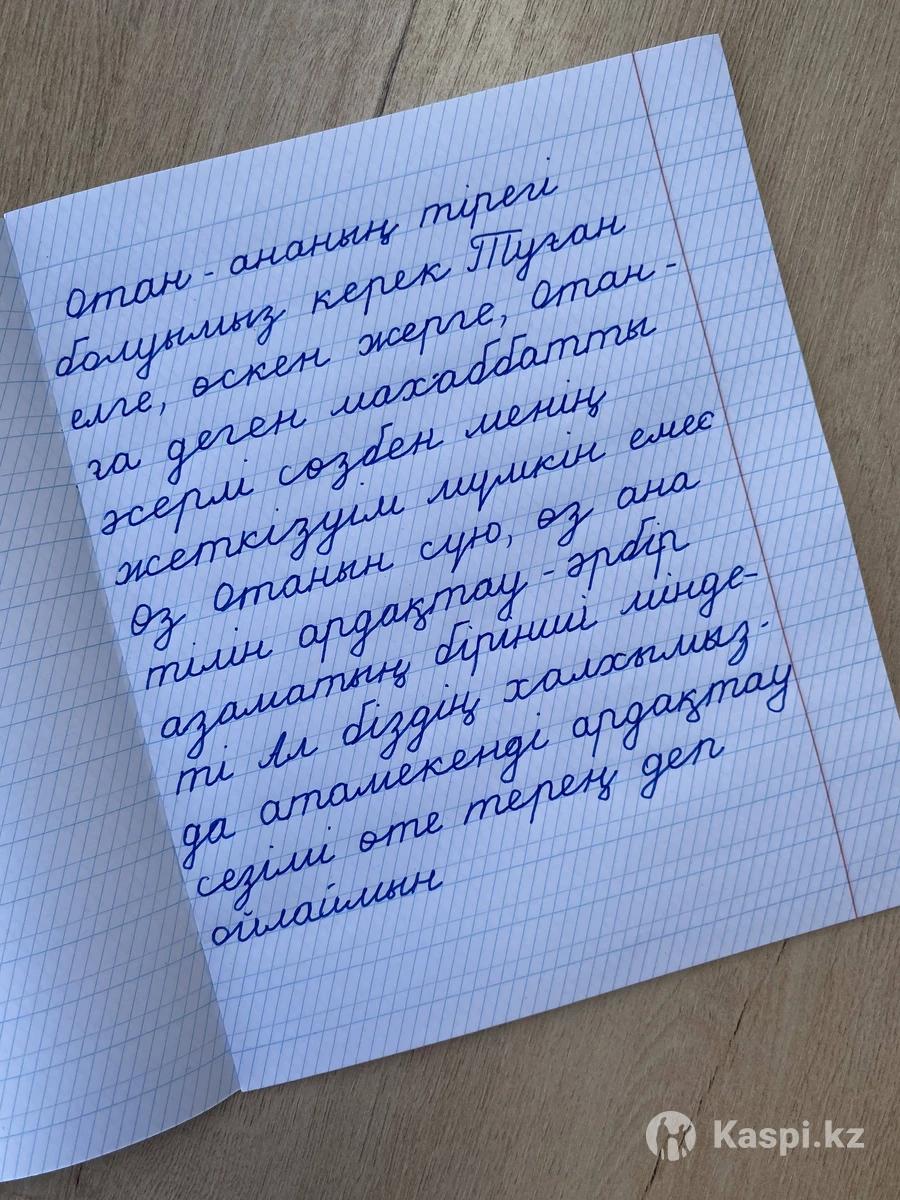 Отан - ананың тірегі
болуымыз керек Туған
елге, өскен жерге, Отан-
ға деген махаббатты
жермі сөзбен менің
жеткізуім мүмкін емес
Өз Отанын сүю, өз ана
тілін ардақтау - әрбір
азаматың бірінші мінде-
ті Ал біздің халхымыз-
да атамекенді ардақтау
сезімі өте терең деп
ойлаймын
Kaspi.kz